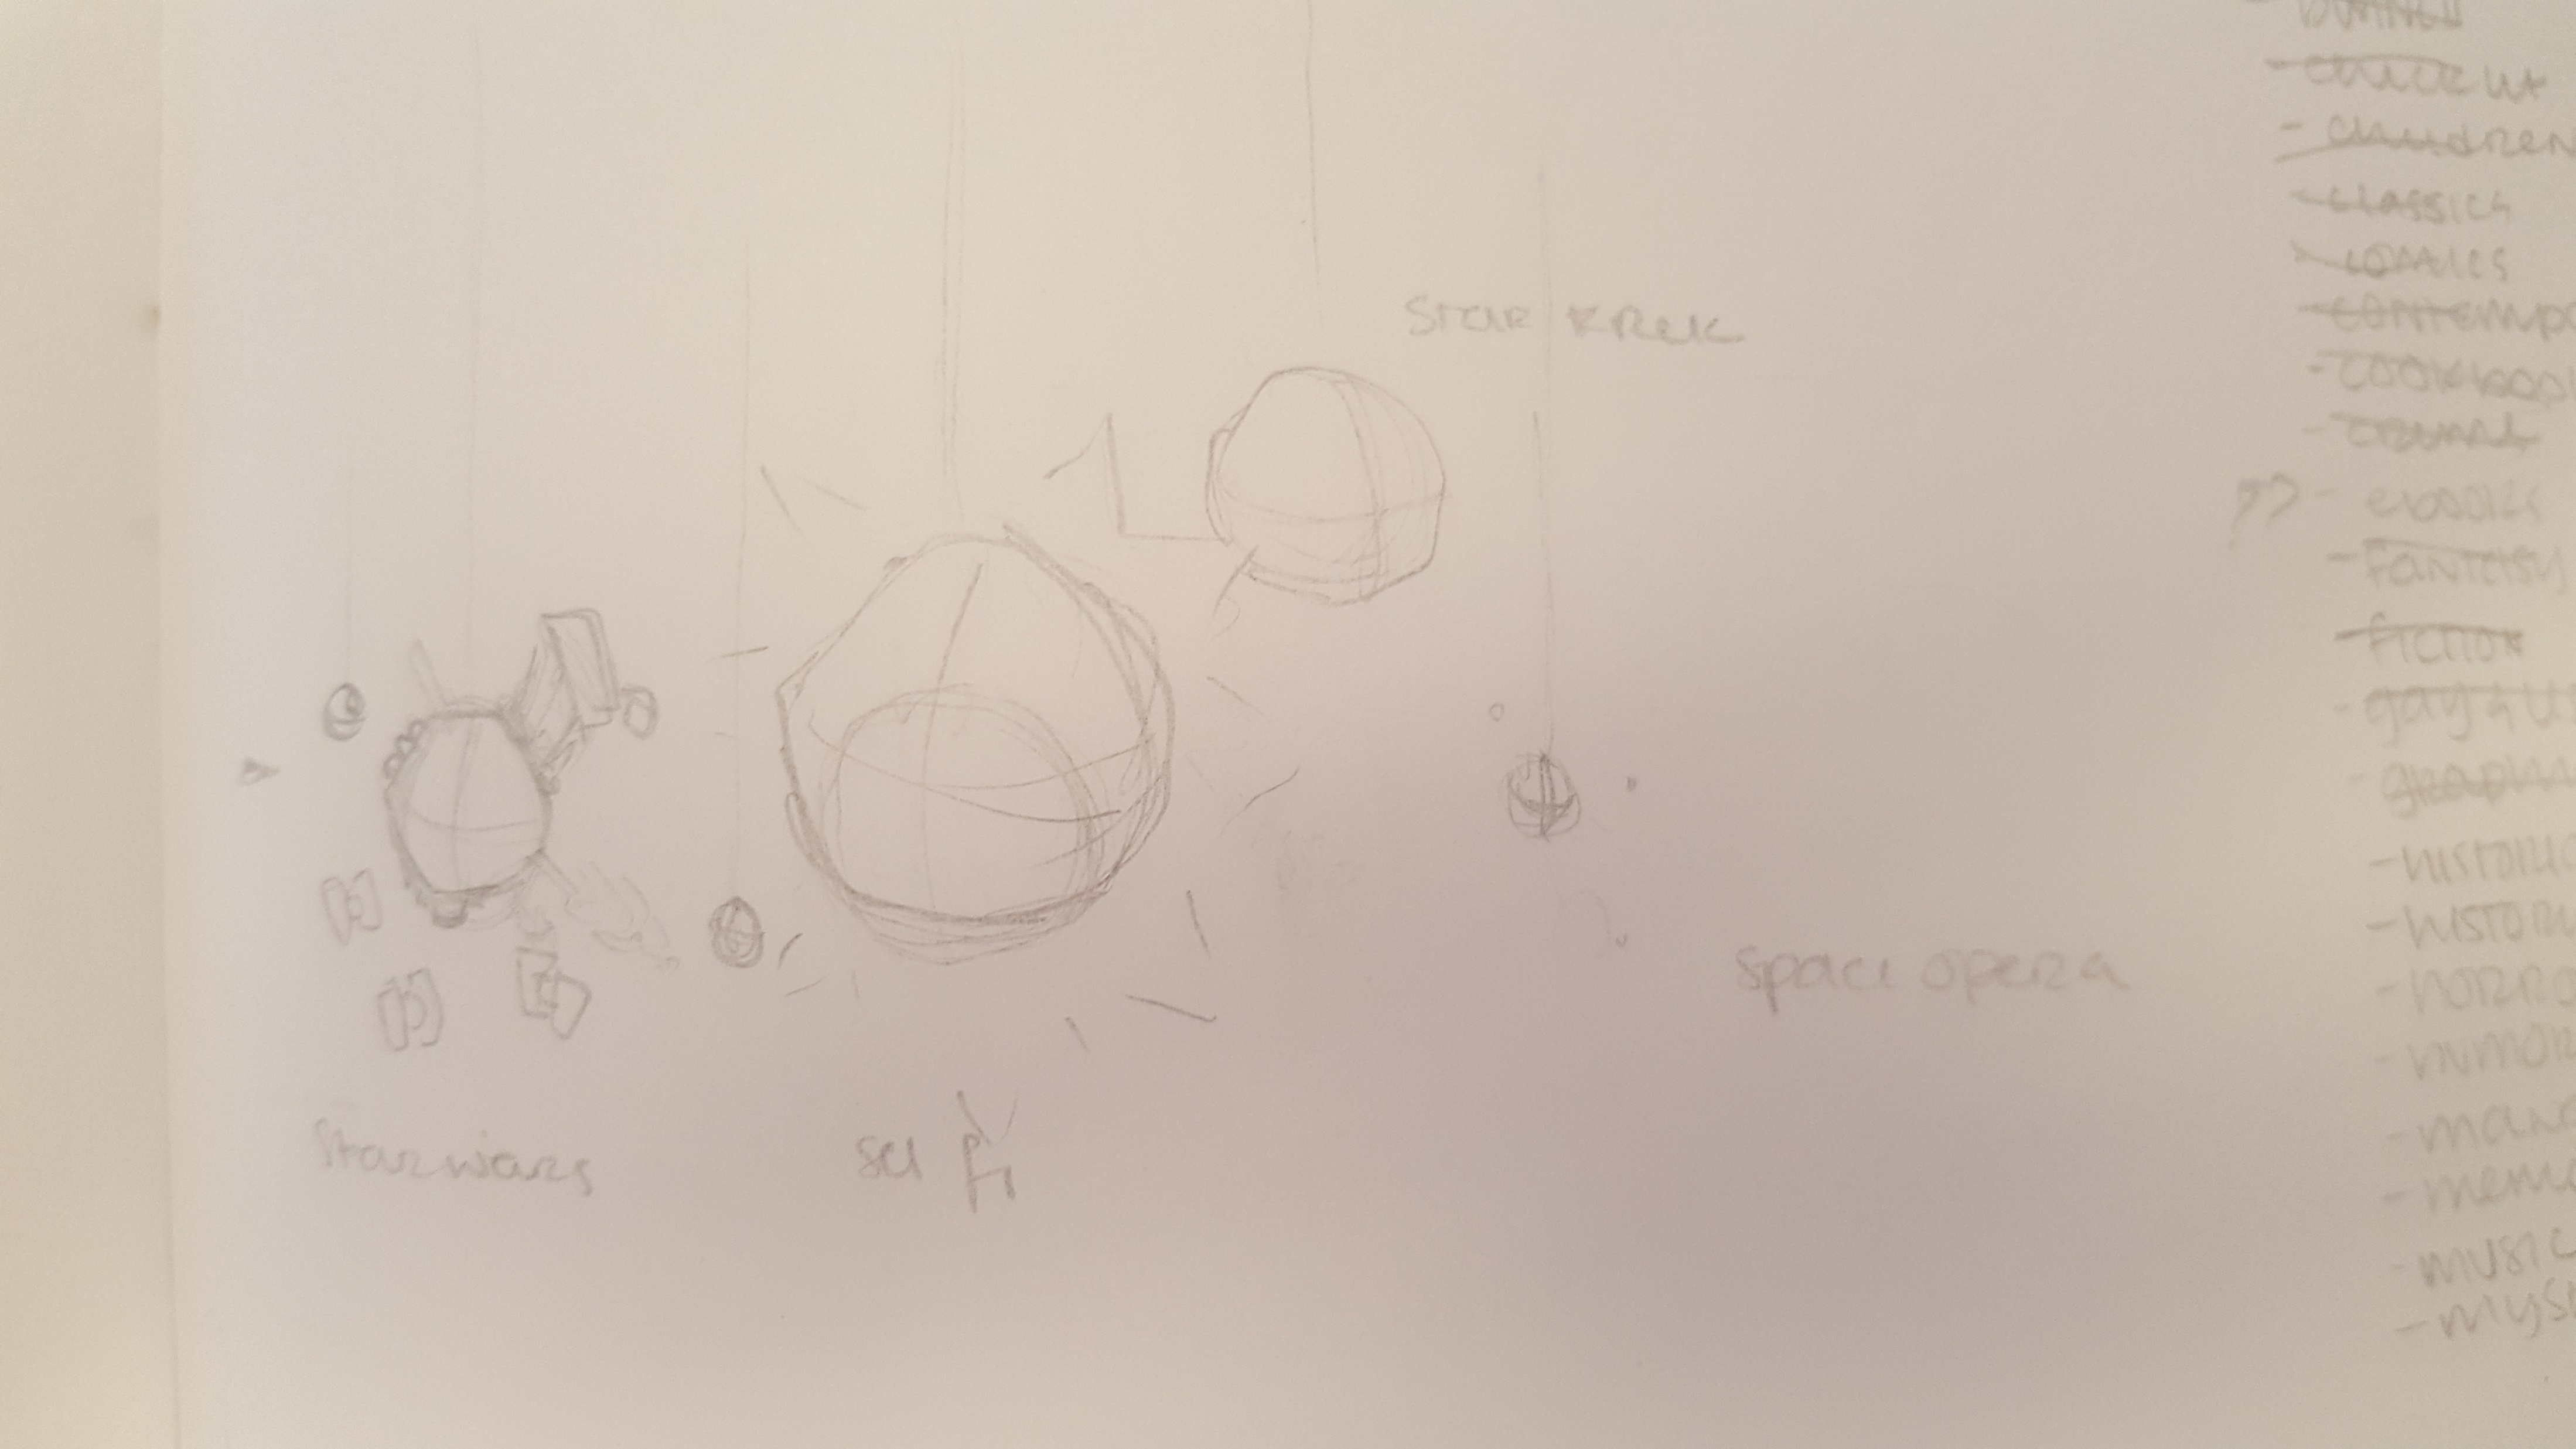 star krek
star wars
sci fi
space opera
- chick lit
- classics
- comics
- contemp
- cookbook
?? - ebooks
- fantasy
- fiction
- gay & l
- graphi
- historic
- histori
- horro
- mang
- memo
- music
- mys